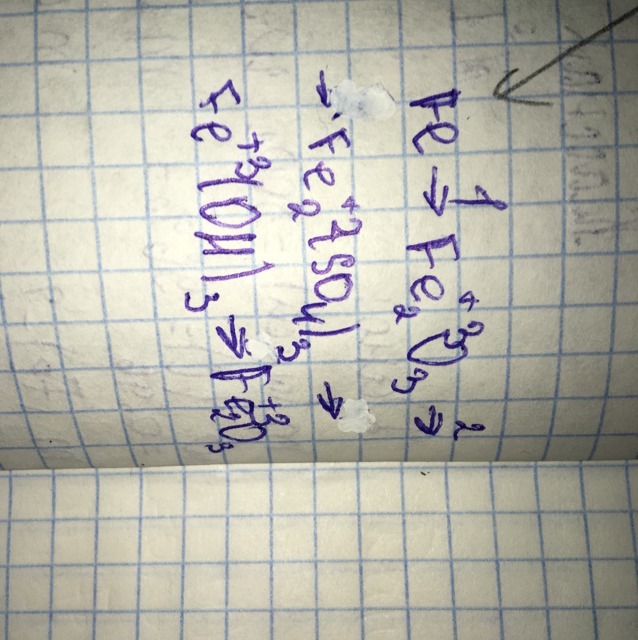 1 2
Fe → Fe₂⁺³O₃ →
→ Fe₂⁺³(SO₄)₃ →
Fe⁺³(OH)₃ → Fe₂⁺³O₃